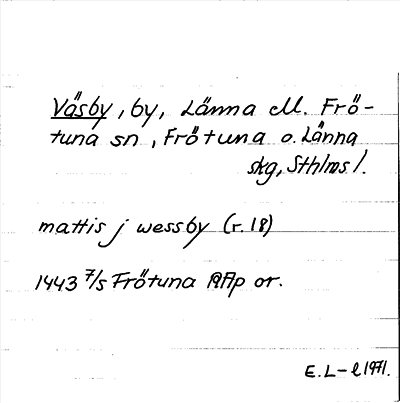 Väsby, by, Länna M. Frö-
tuna sn, Frötuna o. Länna
skg, Sthlms l.
mattis j wessby (r. 18)
1443 7/5 Frötuna RAp or.
E. L-l 1971.